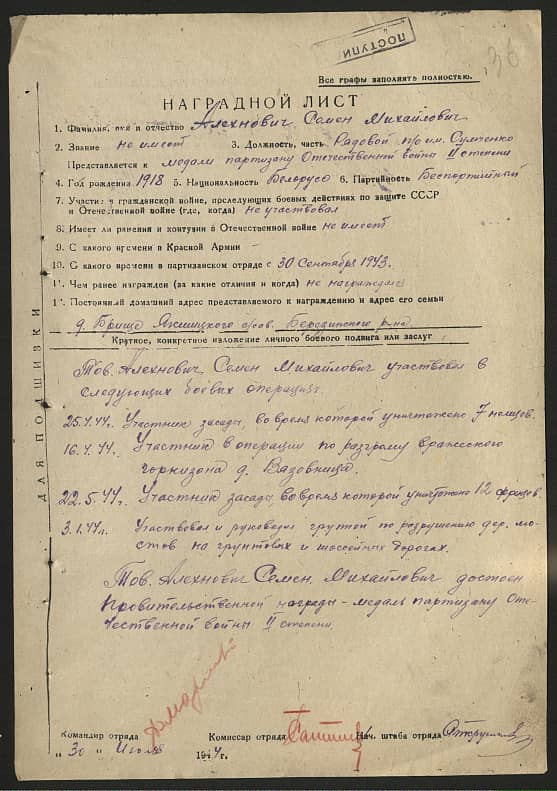 ПОСТУПИ
36
Все графы заполнять полностью.
НАГРАДНОЙ ЛИСТ
1. Фамилия, имя и отчество Алехнович Семен Михайлович
2. Звание не имеет 3. Должность, часть Рядовой п/о им. Сумченко
Представляется к медали партизану Отечественной войны II степени
4. Год рождения 1918 5. Национальность Белорус 6. Партийность Беспартийный
7. Участие в гражданской войне, последующих боевых действиях по защите СССР
и Отечественной войне (где, когда) не участвовал
8. Имеет ли ранения и контузии в Отечественной войне не имеет
9. С какого времени в Красной Армии -
10. С какого времени в партизанском отряде с 30 Сентября 1943.
11. Чем ранее награжден (за какие отличия и когда) не награждался
12. Постоянный домашний адрес представляемого к награждению и адрес его семьи
д. Брище с/сов. Березинского р-на
Краткое, конкретное изложение личного боевого подвига или заслуг
Тов. Алехнович Семен Михайлович участвовал в
следующих боевых операциях.
25.4.44г. Участник засады, во время которой уничтожено 7 немцев.
16.4.44г. Участник в операции по разгрому вражеского
горнизона д. Вязовница.
22.5.44г. Участник засады, во время которой уничтожено 12 фрицев.
3.1.44г. Участвовал и руководил групой по разрушению дер. мо-
стов на грунтовых и шоссейных дорогах.
Тов. Алехнович Семен Михайлович достоен
Провительственной награды - медаль партизану Оте-
чественной войны II степени.
Командир отряда Комиссар отряда Нач. штаба отряда
„ 30 " Июля 1944г.
ДЛЯ ПОДШИВКИ